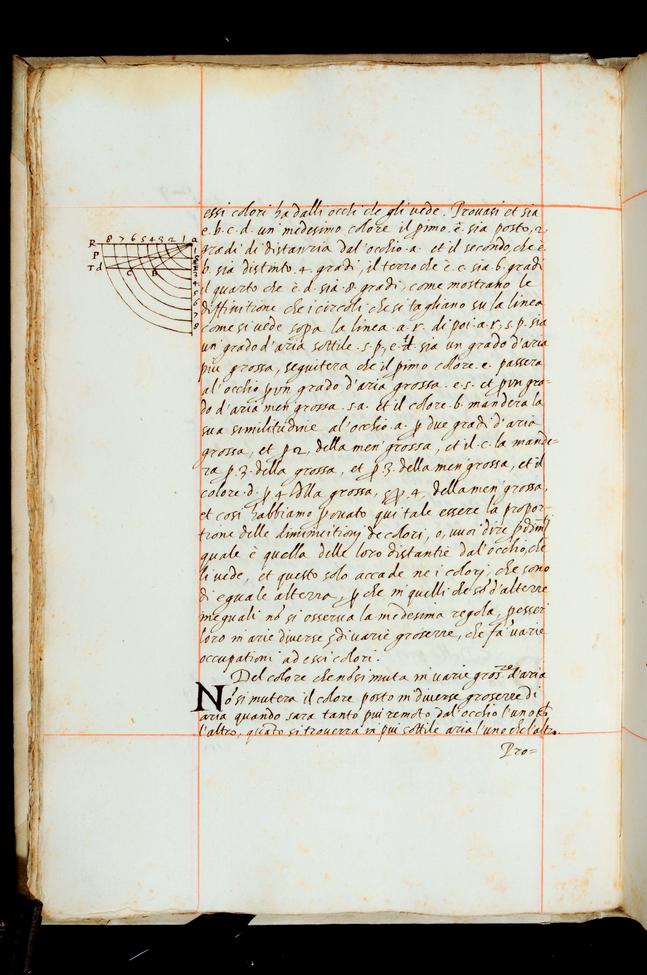 R 8 7 6 5 4 3 2 1 a
P
T d c B
1
2
3
4
5
6
7
8
essi colori ha dalli occhi che gli vede. Provasi et sia
e. b. c. d. un medesimo colore il pimo. e. sia posto, 2
gradi di distantia dal' occhio a. et il secondo, che è
b. sia distinto. 4. gradi, il terzo che è. c. sia. 6. gradi
il quarto che è. d. sia. 8. gradi, come mostrano le
diffinitione che i circoli che si tagliano su la linea
come si vede sopa la linea. a. r. di poi. a. r, s. p. sia
un' grado d'aria sottile. s. p, e. t. sia un grado d'aria
piu grossa, seguitera che il pimo colore. e. passera
al' occhio p un grado d'aria grossa. e. s. et p un gra-
do d'aria men' grossa. s. a. et il colore. b. mandera la
sua similitudine al' occhio. a. p due gradi d'aria
grossa, et p 2, della men' grossa, et il. c. la mande-
ra p 3. della grossa, et p 3. della men' grossa, et il
colore. d. p 4 della grossa, p 4, della men' grossa,
et cosi habbiamo provato qui tale essere la propor-
tione delle diminuitionj de colori, o, vuoi dire
quale è quella delle loro distantie dal' occhio, che
li vede, et questo solo accade ne i colorj, che sono
di eguale altezza, p che in quelli che so' d'altezze
ineguali no' si osserva la medesima regola, p esser
loro in arie diverse di varie grosezze, che fa' varie
occupationi ad essi colori.
Del colore che no' si muta in varie gros.ze d'aria
No' si mutera il colore posto in diverse grosezze di
aria quando sara tanto piu remoto dal' occhio l'uno ch
l'altro, quato si trouerra in piu sottile aria l'uno che l'altro.
Pro=